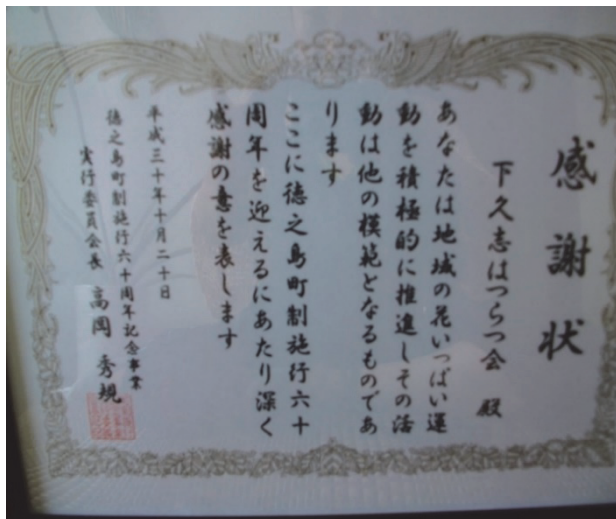 感謝状
下久志はつらつ会 殿
あなたは地域の花いっぱい運
動を積極的に推進しその活
動は他の模範となるものであ
ります
ここに徳之島町制施行六十
周年を迎えるにあたり深く
感謝の意を表します
平成三十年十月二十日
徳之島町制施行六十周年記念事業
実行委員会長 高岡 秀規